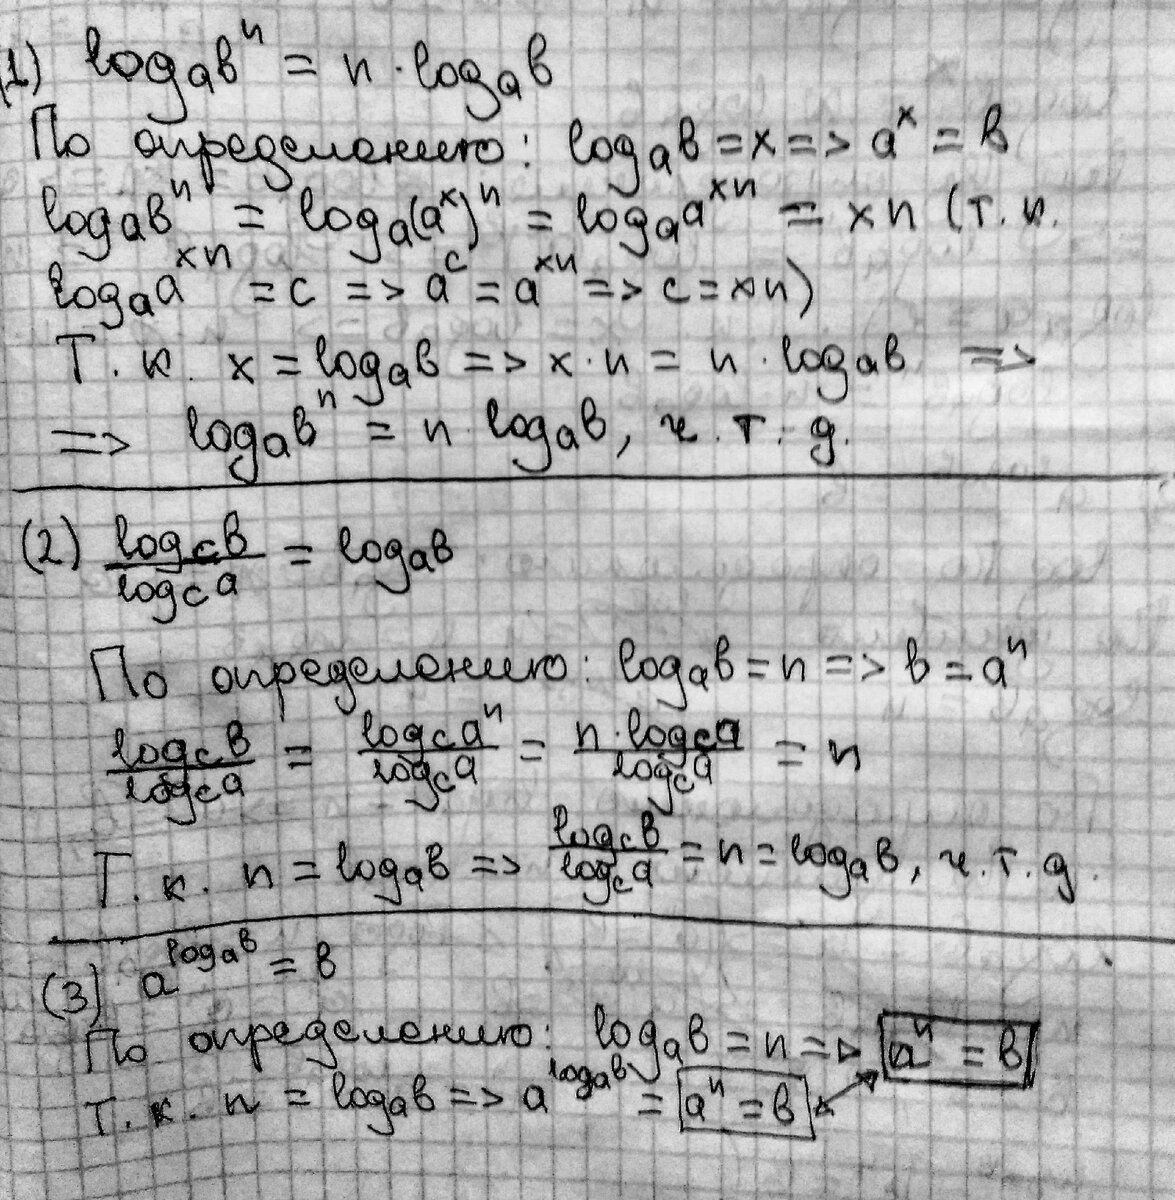 (1) logₐbⁿ = n · logₐb
По определению: logₐb = x => aˣ = b
logₐbⁿ = logₐ(aˣ)ⁿ = logₐaˣⁿ = xn (т.к.
logₐaˣⁿ = c => aᶜ = aˣⁿ => c = xn)
Т.к. x = logₐb => x · n = n · logₐb =>
=> logₐbⁿ = n · logₐb, ч.т.д.
(2) \frac{log_c b}{log_c a} = logₐb
По определению: logₐb = n => b = aⁿ
\frac{log_c b}{log_c a} = \frac{log_c aⁿ}{log_c a} = \frac{n · log_c a}{log_c a} = n
Т.к. n = logₐb => \frac{log_c b}{log_c a} = n = logₐb, ч.т.д.
(3) a^{logₐb} = b
По определению: logₐb = n => aⁿ = b
Т.к. n = logₐb => a^{logₐb} = aⁿ = b